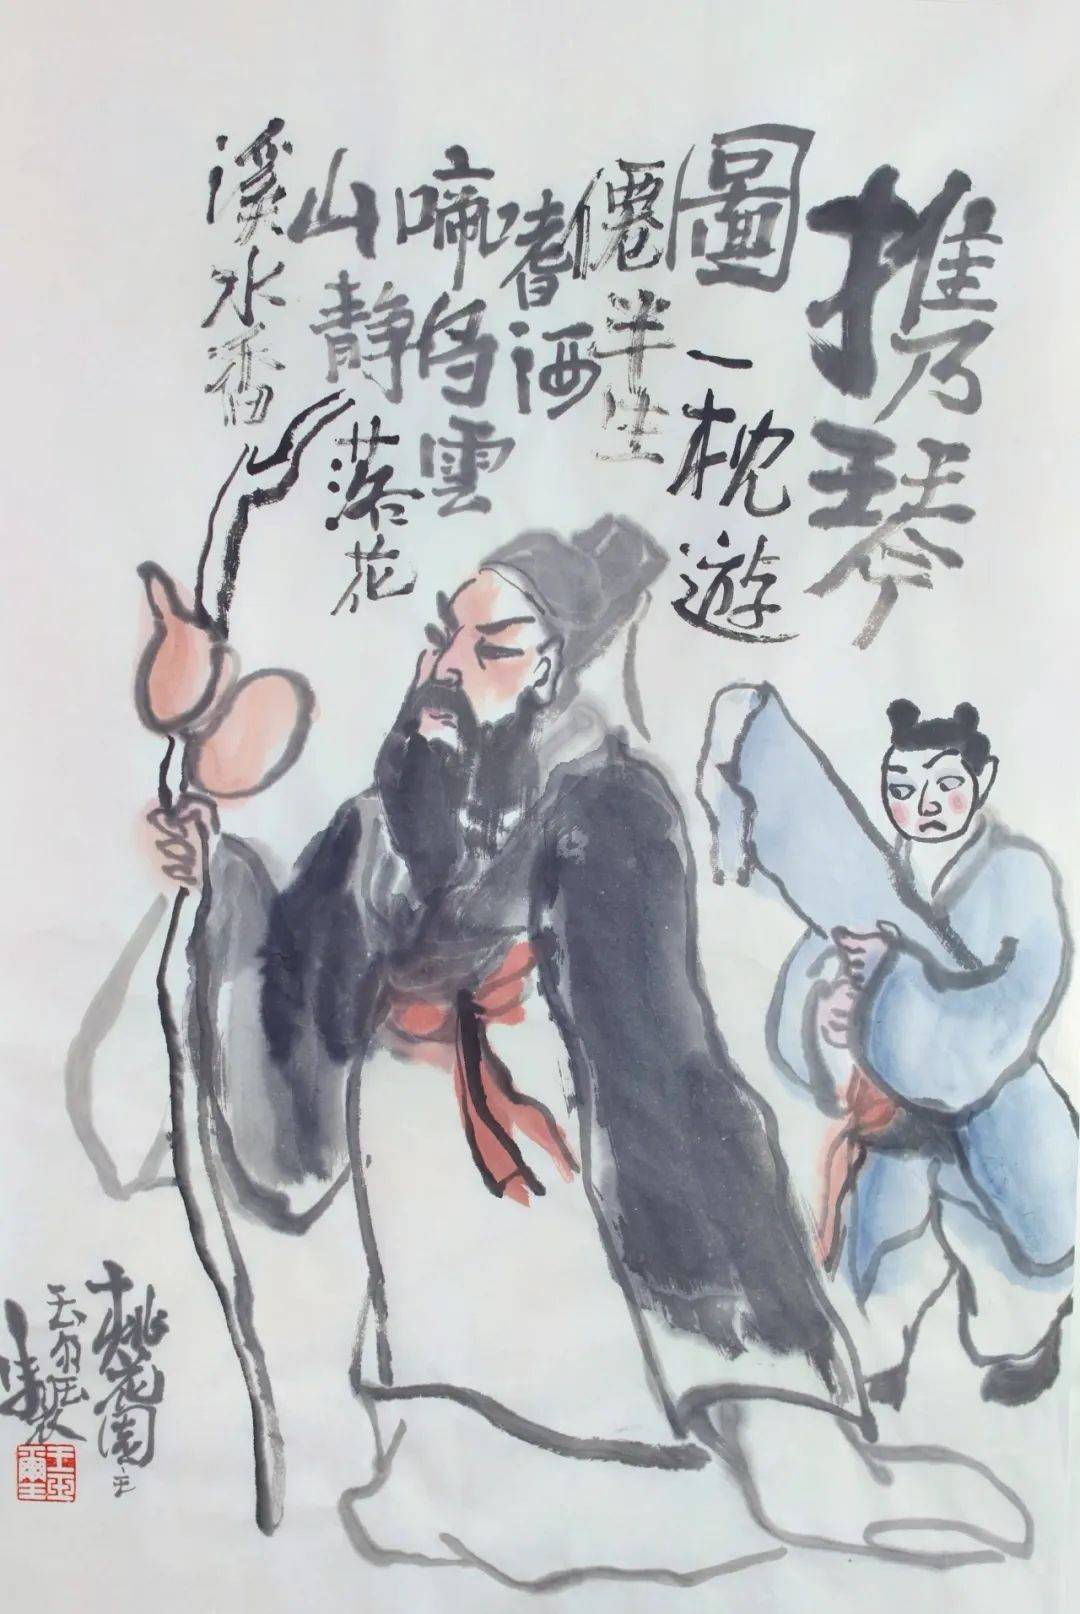 携琴
圖一枕遊
僊半生
嗜酒
啼鳥雲
山静落花
溪水香
桃花園主